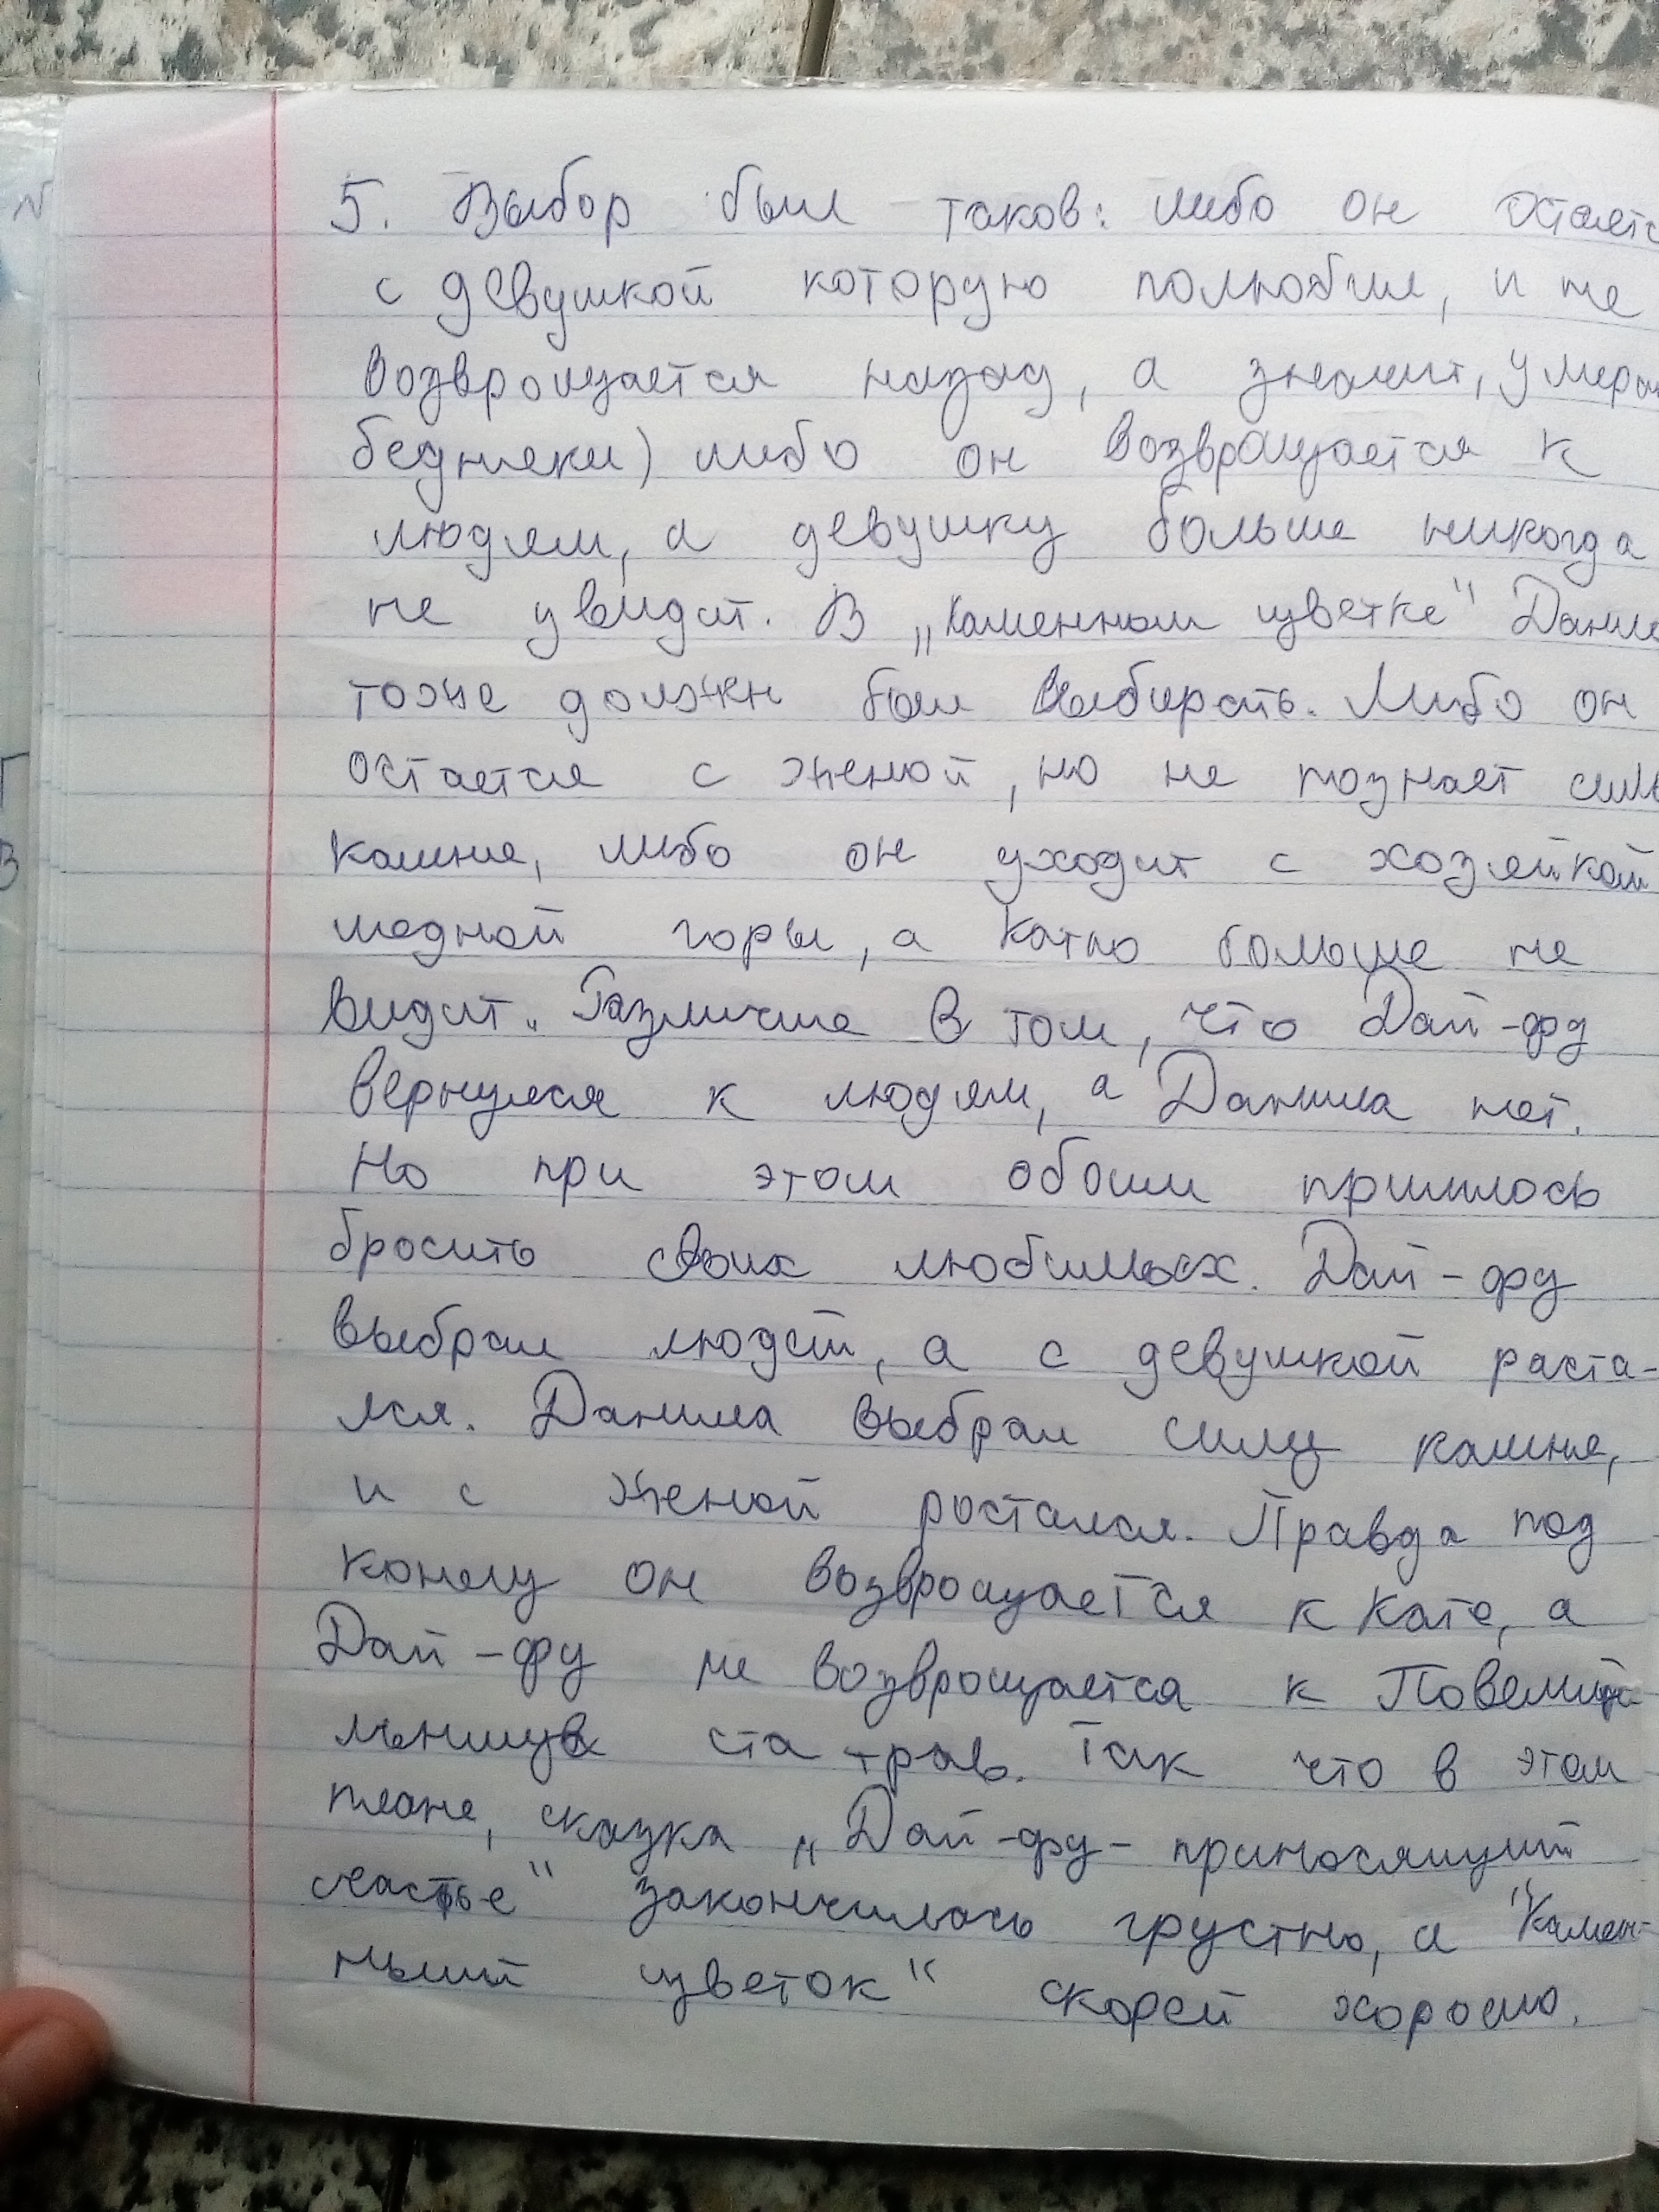 5. Выбор был таков: либо он остаетс
с девушкой которую полюбил, и не
возвращается назад, а значит, умера
бедняки) либо он возвращается к
людям, а девушку больше никогда
не увидит. В „каменном цветке" Данила
тоже должен был выбирать. Либо он
остается с женой, но не познает силы
камня, либо он уходит с хозяйкой
медной горы, а Катю больше не
видит. Различие в том, что Дай-фу
вернулся к людям, а Данила нет.
Но при этом обоим пришлось
бросить своих любимых. Дай-фу
выбрал людей, а с девушкой раста-
лся. Данила выбрал силу камня,
и с женой расталася. Правда под
конец он возвращается к Кате, а
Дай-фу не возвращается к
ста трав. Так что в этом
плане, сказка „Дай-фу- приносящий
счастье" закончилась грустно, а "Камен-
ный цветок" скорей хорошо.